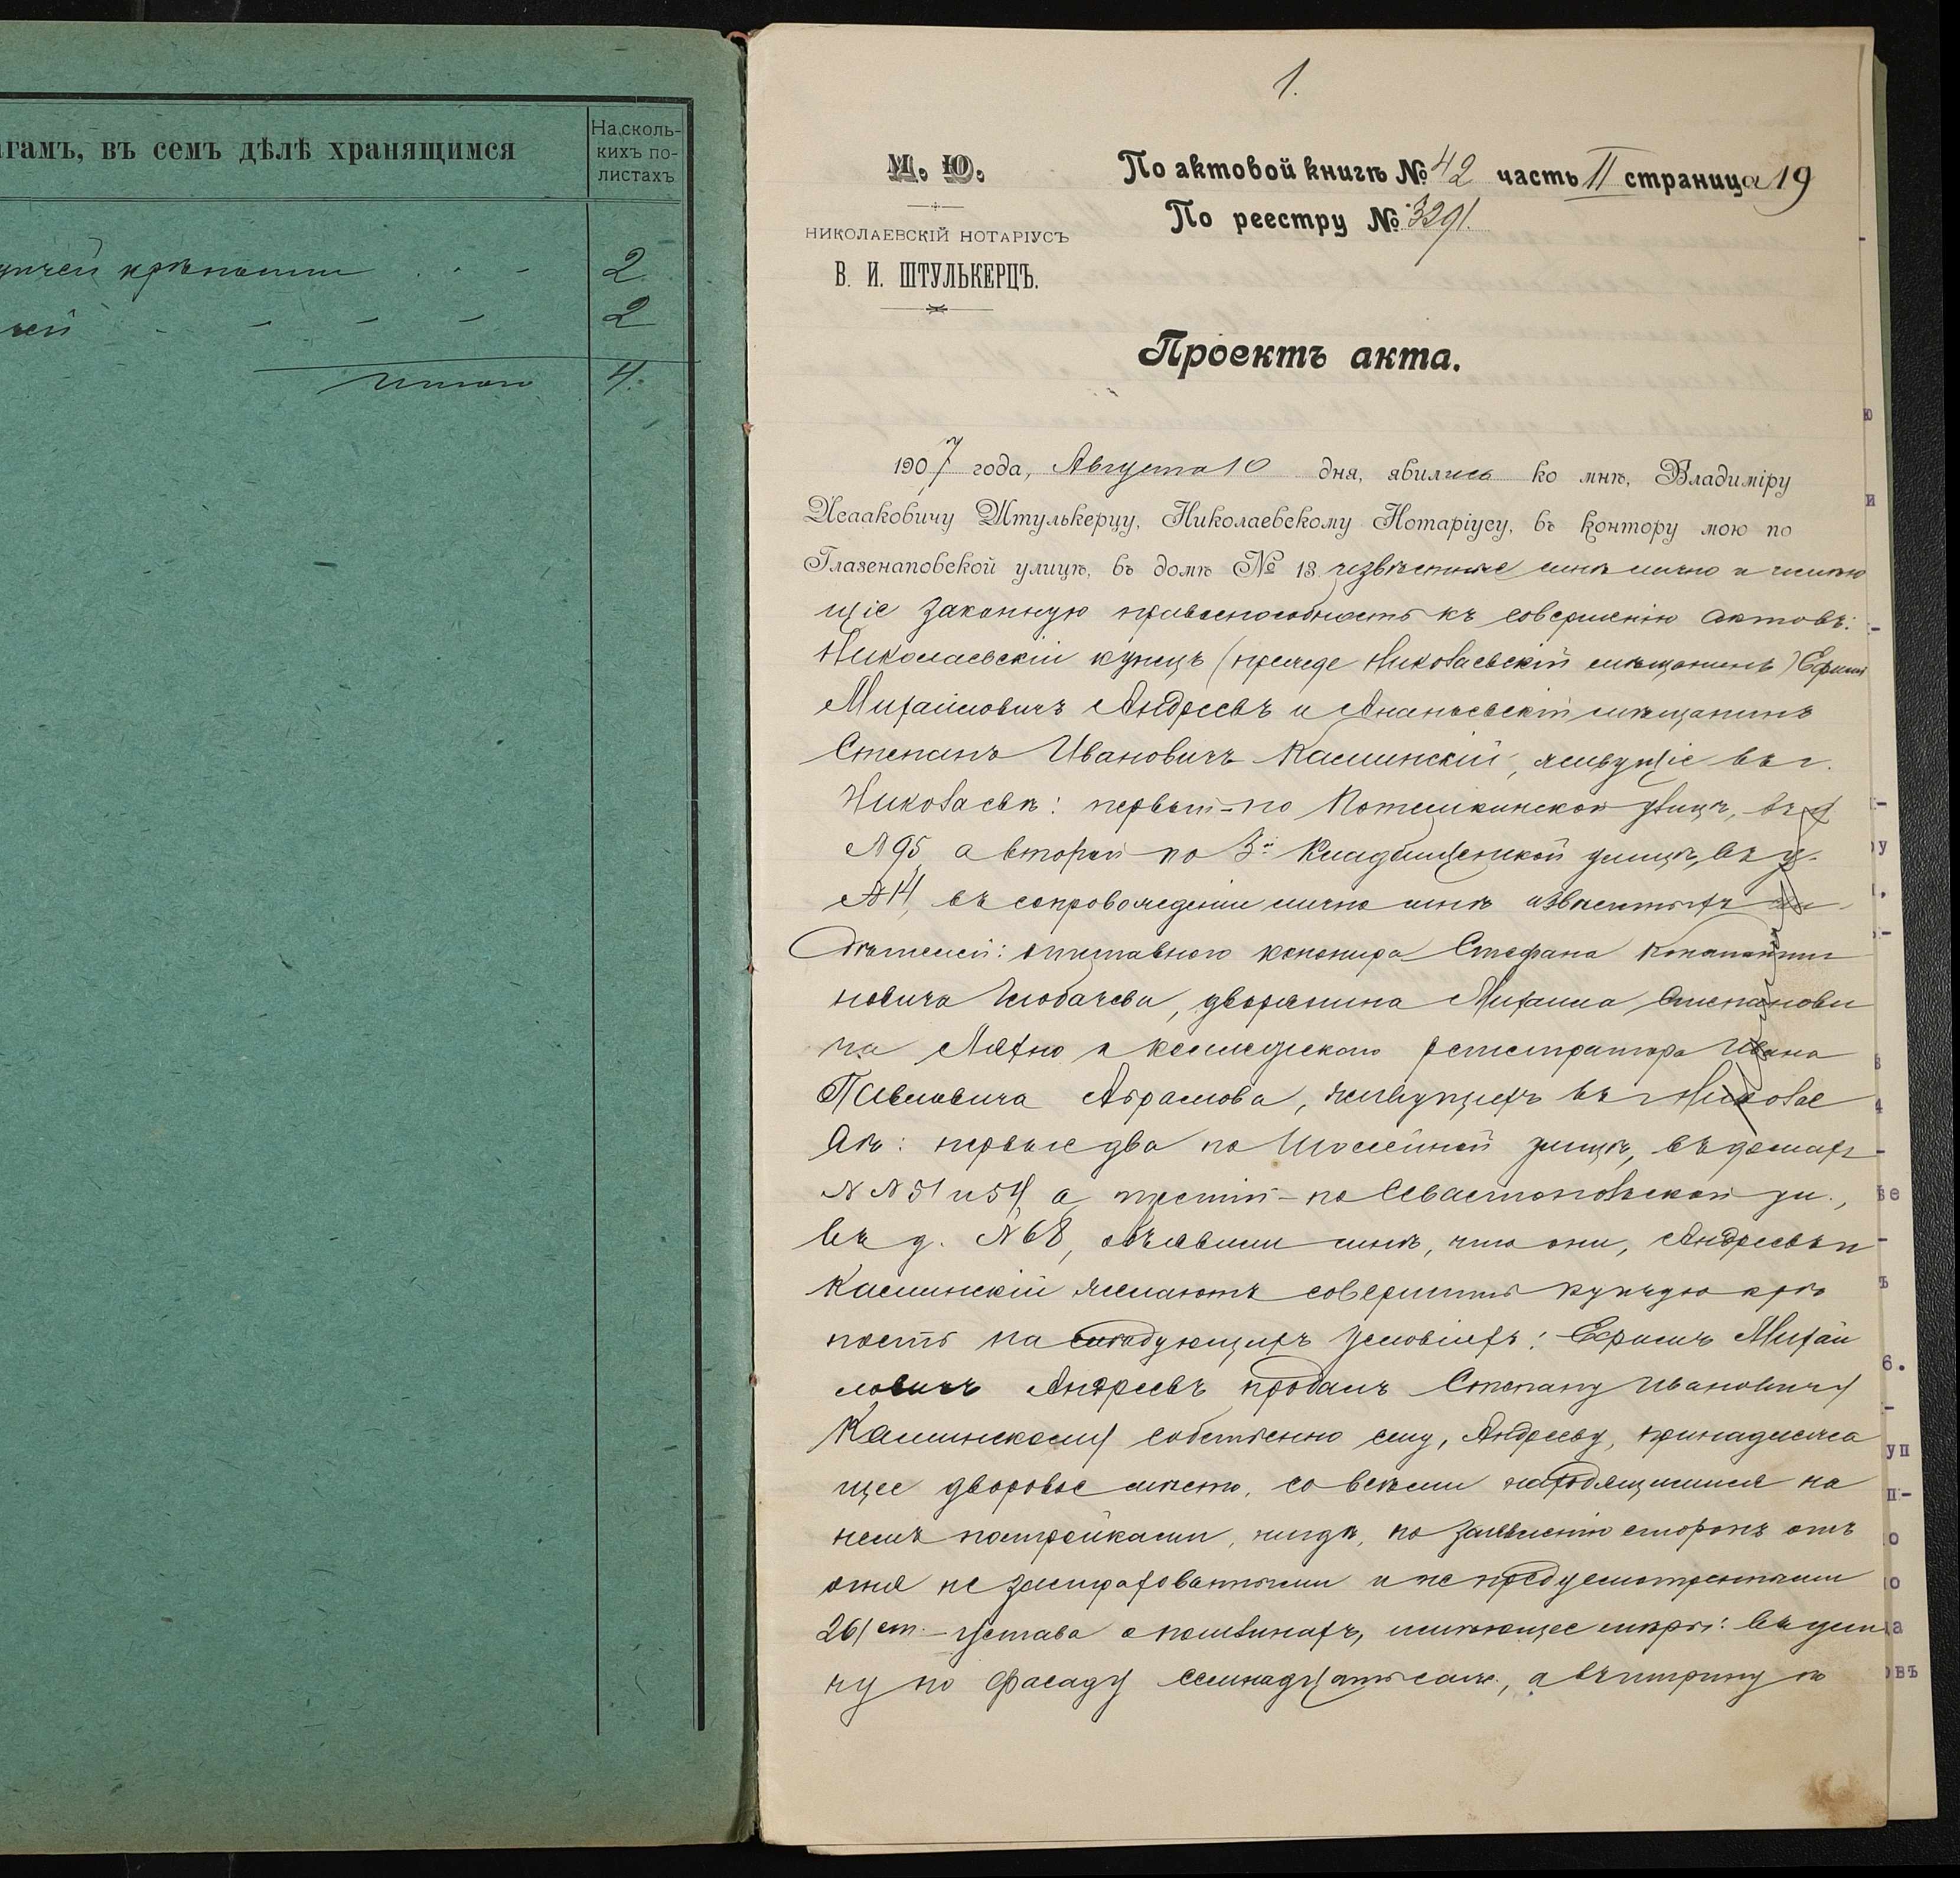 агамъ, въ семъ дѣлѣ хранящимся
На сколь-
кихъ по-
листахъ
упчей крѣпости 2
чей 2
Итого 4.
1.
М. Ю.
НИКОЛАЕВСКІЙ НОТАРІУСЪ
В. И. ШТУЛЬКЕРЦЪ.
По актовой книгѣ № 42 часть II страница 19
По реестру № 3291.
Проектъ акта.
1907 года, Августа 10 дня, явились ко мнѣ, Владиміру
Исааковичу Штулькерцу, Николаевскому Нотаріусу, въ контору мою по
Глазенаповской улицѣ, въ домѣ № 13 извѣстные мнѣ лично и имѣю
щіе законную правоспособность къ совершенію актовъ:
Николаевскій купецъ (прежде Николаевскій мѣщанинъ) Ефимъ
Михайловичъ Андреевъ и Ананьевскій мѣщанинъ
Степанъ Ивановичъ Калинскій, живущіе въ г.
Николаевѣ: первый - по Потемкинской улицѣ, въ д
№ 95, а второй по 3й Кладбищенской улицѣ, въ д.
№ 14, въ сопровожденіи лично мнѣ извѣстныхъ сви
дѣтелей: отставного канонира Стефана Константи
новича Глобачева, дворянина Михаила Степанови
ча Ляхно и коллежскаго регистратора Ивана
Павловича Абрамова, живущихъ въ г. Николае
вѣ: первые два по Шоссейной улицѣ, въ домахъ
№ № 51 и 54, а третій - по Севастопольской ул.,
въ д. № 68, объявили мнѣ, что они, Андреевъ и
Калинскій желаютъ совершить купчую крѣ
пость на слѣдующихъ условіяхъ: Ефимъ Михай
ловичъ Андреевъ продалъ Степану Ивановичу
Калинскому собственно ему, Андрееву, принадлежа
щее дворовое мѣсто, со всѣми находящимися на
немъ постройками, нигдѣ, по заявленію сторонъ отъ
огня не застрахованными и не предусмотренными
261 ст. Устава о пошлинахъ, имѣющее мѣры: въ дли
ну по фасаду семнадцать саж., а въ ширину по
ю
и
-
у
.
-
в
4
-
ѣе
-
ъ
6.
-
уп
п-
о
ю
ла
овъ